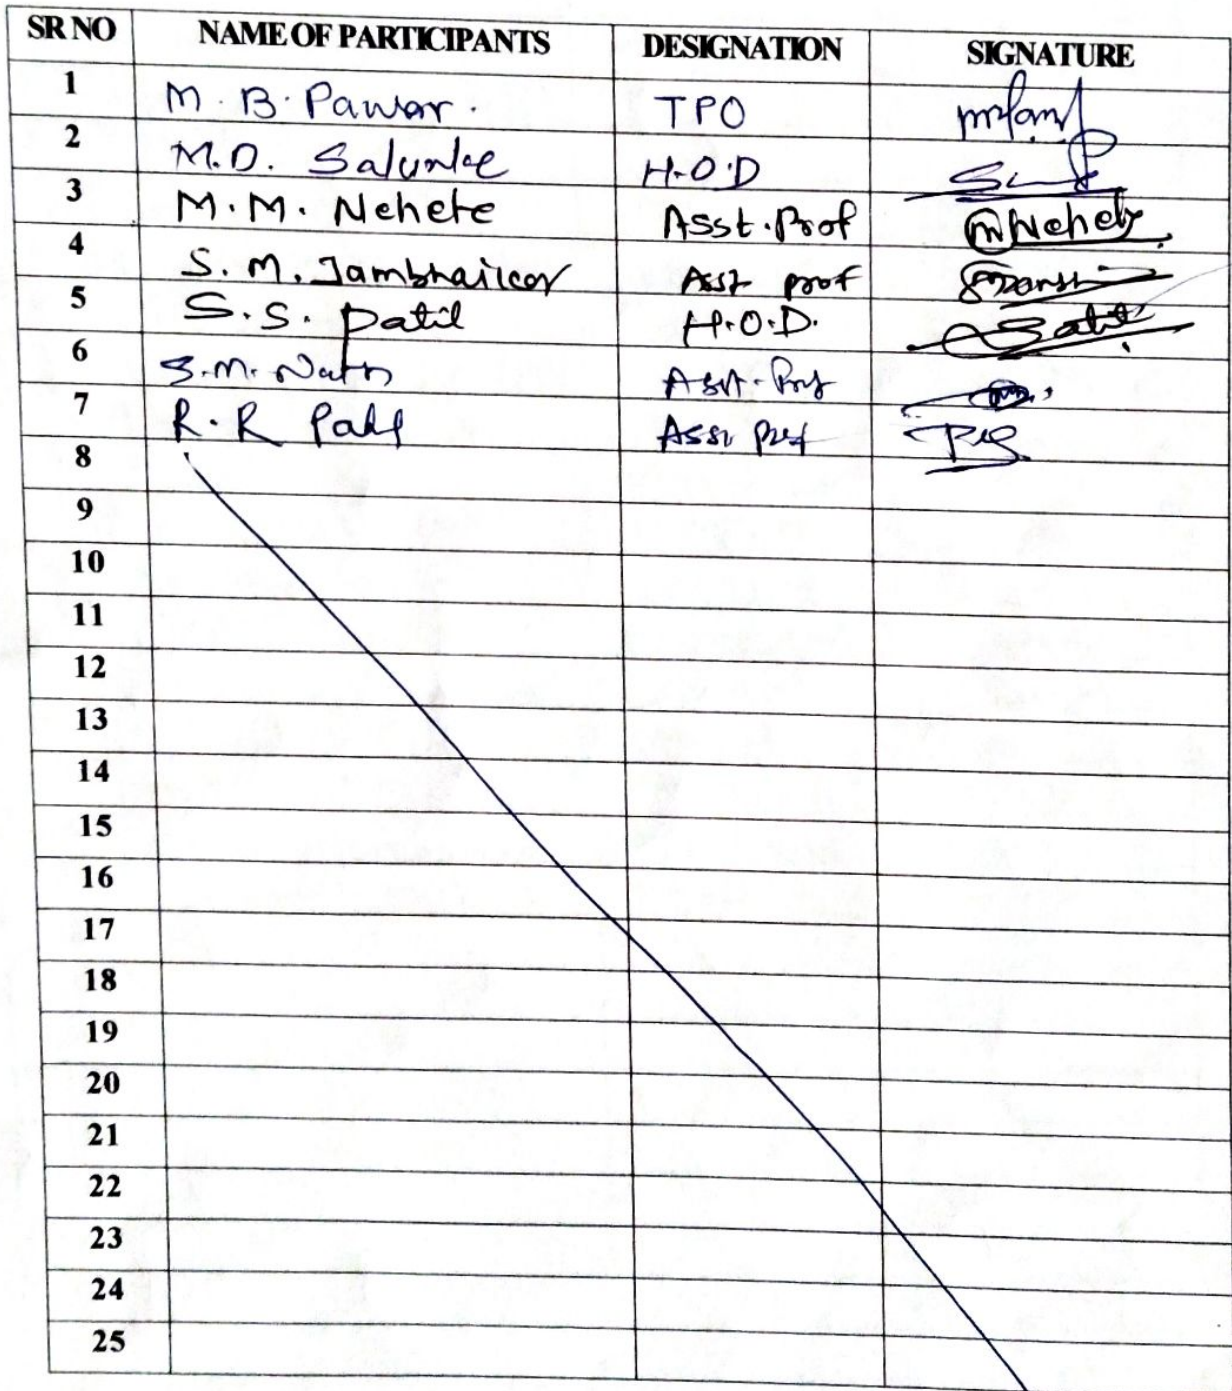 SR NO NAME OF PARTICIPANTS DESIGNATION SIGNATURE
1 M. B. Pawar. TPO
2 M.D. Salunke H.O.D
3 M.M. Nehete Asst. Prof Nehete
4 S. M. Jambhaikar Asst prof
5 S.S. Patil H.O.D. Patil
6 S.M. Asst. Prof
7 R. R Patil Asst Prof
8
9
10
11
12
13
14
15
16
17
18
19
20
21
22
23
24
25